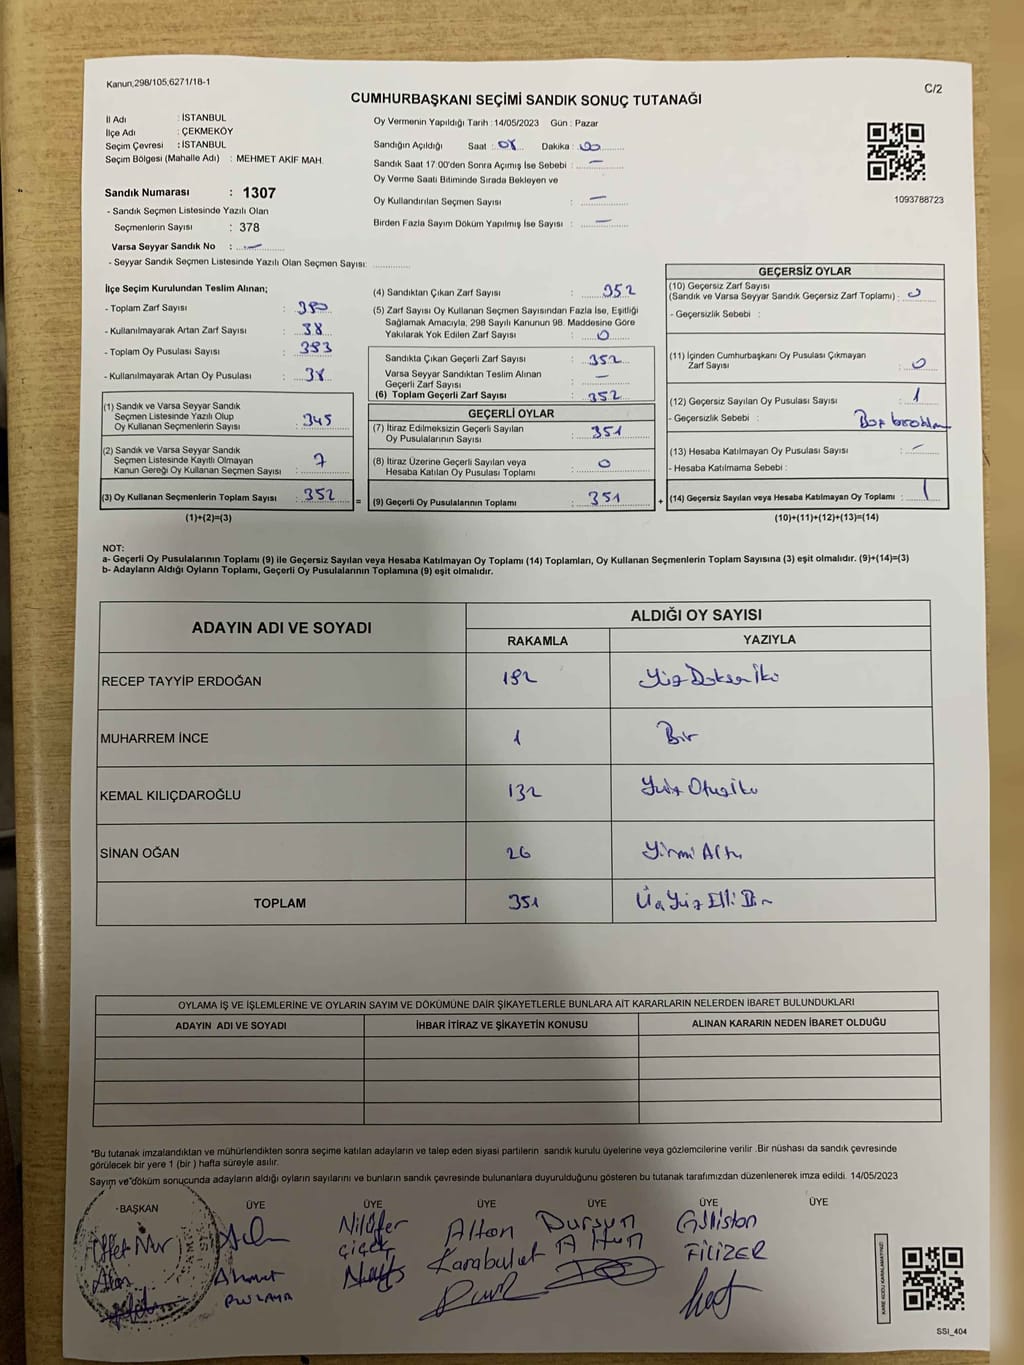 Kanun,298/105,6271/18-1
C/2
CUMHURBAŞKANI SEÇİMİ SANDIK SONUÇ TUTANAĞI
İl Adı : İSTANBUL
İlçe Adı : ÇEKMEKÖY
Seçim Çevresi : İSTANBUL
Seçim Bölgesi (Mahalle Adı) : MEHMET AKİF MAH.
Sandık Numarası : 1307
- Sandık Seçmen Listesinde Yazılı Olan
Seçmenlerin Sayısı : 378
Varsa Seyyar Sandık No : —
- Seyyar Sandık Seçmen Listesinde Yazılı Olan Seçmen Sayısı:
Oy Vermenin Yapıldığı Tarih : 14/05/2023 Gün : Pazar
Sandığın Açıldığı Saat : 08 Dakika : 00
Sandık Saat 17:00'den Sonra Açımış İse Sebebi : —
Oy Verme Saati Bitiminde Sırada Bekleyen ve
Oy Kullandırılan Seçmen Sayısı : —
Birden Fazla Sayım Döküm Yapılmış İse Sayısı : —
1093788723
İlçe Seçim Kurulundan Teslim Alınan;
- Toplam Zarf Sayısı :
- Kullanılmayarak Artan Zarf Sayısı : 38
- Toplam Oy Pusulası Sayısı : 393
- Kullanılmayarak Artan Oy Pusulası : 38
(1) Sandık ve Varsa Seyyar Sandık
Seçmen Listesinde Yazılı Olup
Oy Kullanan Seçmenlerin Sayısı : 345
(2) Sandık ve Varsa Seyyar Sandık
Seçmen Listesinde Kayıtlı Olmayan
Kanun Gereği Oy Kullanan Seçmen Sayısı : 7
(3) Oy Kullanan Seçmenlerin Toplam Sayısı : 352 =
(1)+(2)=(3)
(4) Sandıktan Çıkan Zarf Sayısı : 352
(5) Zarf Sayısı Oy Kullanan Seçmen Sayısından Fazla İse, Eşitliği
Sağlamak Amacıyla, 298 Sayılı Kanunun 98. Maddesine Göre
Yakılarak Yok Edilen Zarf Sayısı : 0
Sandıkta Çıkan Geçerli Zarf Sayısı : 352
Varsa Seyyar Sandıktan Teslim Alınan
Geçerli Zarf Sayısı : —
(6) Toplam Geçerli Zarf Sayısı : 352
GEÇERLİ OYLAR
(7) İtiraz Edilmeksizin Geçerli Sayılan
Oy Pusulalarının Sayısı : 351
(8) İtiraz Üzerine Geçerli Sayılan veya
Hesaba Katılan Oy Pusulası Toplamı : 0
(9) Geçerli Oy Pusulalarının Toplamı : 351 +
GEÇERSİZ OYLAR
(10) Geçersiz Zarf Sayısı
(Sandık ve Varsa Seyyar Sandık Geçersiz Zarf Toplamı) : 0
- Geçersizlik Sebebi :
(11) İçinden Cumhurbaşkanı Oy Pusulası Çıkmayan
Zarf Sayısı : 0
(12) Geçersiz Sayılan Oy Pusulası Sayısı : 1
- Geçersizlik Sebebi :
(13) Hesaba Katılmayan Oy Pusulası Sayısı : —
- Hesaba Katılmama Sebebi :
(14) Geçersiz Sayılan veya Hesaba Katılmayan Oy Toplamı : 1
(10)+(11)+(12)+(13)=(14)
NOT:
a- Geçerli Oy Pusulalarının Toplamı (9) ile Geçersiz Sayılan veya Hesaba Katılmayan Oy Toplamı (14) Toplamları, Oy Kullanan Seçmenlerin Toplam Sayısına (3) eşit olmalıdır. (9)+(14)=(3)
b- Adayların Aldığı Oyların Toplamı, Geçerli Oy Pusulalarının Toplamına (9) eşit olmalıdır.
ADAYIN ADI VE SOYADI ALDIĞI OY SAYISI
RAKAMLA YAZIYLA
RECEP TAYYİP ERDOĞAN 192 Yüz Doksan İki
MUHARREM İNCE 1 Bir
KEMAL KILIÇDAROĞLU 132 Yüz Otuz İki
SİNAN OĞAN 26 Yirmi Altı
TOPLAM 351 Üç Yüz Elli Bir
OYLAMA İŞ VE İŞLEMLERİNE VE OYLARIN SAYIM VE DÖKÜMÜNE DAİR ŞİKAYETLERLE BUNLARA AİT KARARLARIN NELERDEN İBARET BULUNDUKLARI
ADAYIN ADI VE SOYADI İHBAR İTİRAZ VE ŞİKAYETİN KONUSU ALINAN KARARIN NEDEN İBARET OLDUĞU
*Bu tutanak imzalandıktan ve mühürlendikten sonra seçime katılan adayların ve talep eden siyasi partilerin sandık kurulu üyelerine veya gözlemcilerine verilir .Bir nüshası da sandık çevresinde
görülecek bir yere 1 (bir ) hafta süreyle asılır.
Sayım ve döküm sonucunda adayların aldığı oyların sayılarını ve bunların sandık çevresinde bulunanlara duyurulduğunu gösteren bu tutanak tarafımızdan düzenlenerek imza edildi. 14/05/2023
BAŞKAN ÜYE ÜYE ÜYE ÜYE ÜYE ÜYE
Nilüfer Altan Dursun Gülistan
Çiçek Karabulut Altun FİLİZER
Ahmet
KARE KODU KARALAMAYINIZ!
SSI_404